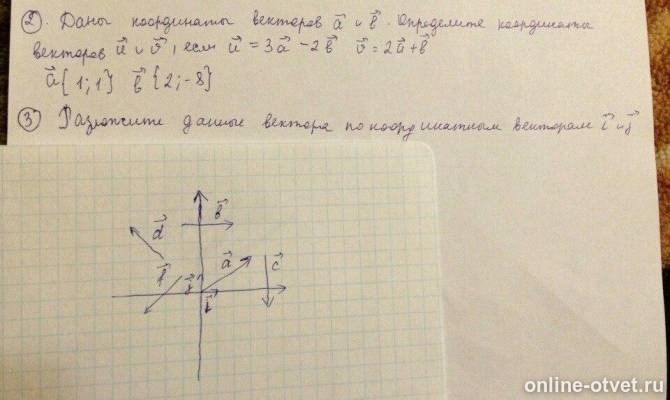 2. Даны координаты векторов a⃗ и b⃗. Определите координаты
векторов u⃗ и v⃗, если u⃗ = 3a⃗ - 2b⃗ v⃗ = 2u⃗ + b⃗
a⃗{1;1} b⃗{2;-8}
3 Разложите данные вектора по координатным векторам i⃗ и j⃗
b⃗
d⃗
a⃗
c⃗
f⃗
j⃗
i⃗
online-otvet.ru